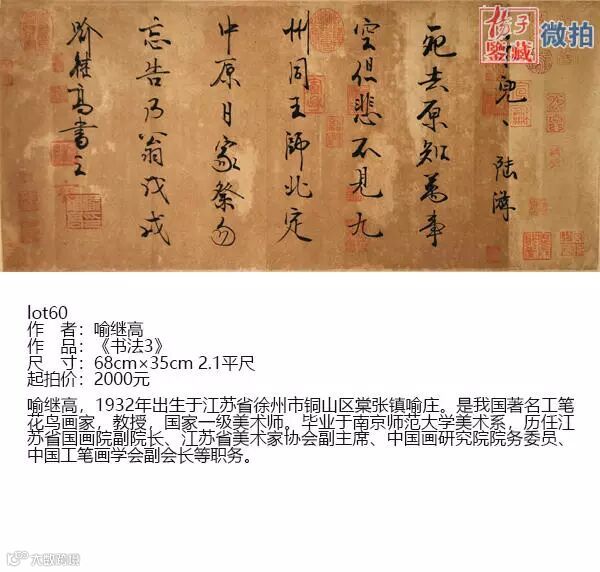 揚子
鑒藏
微拍
示兒、陸游
死去原知萬事
空但悲不見九
州同王師北定
中原日家祭勿
忘告乃翁戊戌
喻繼高書之
lot60
作 者：喻继高
作 品：《书法3》
尺 寸：68cm×35cm 2.1平尺
起拍价：2000元
喻继高，1932年出生于江苏省徐州市铜山区棠张镇喻庄。是我国著名工笔
花鸟画家，教授，国家一级美术师。毕业于南京师范大学美术系，历任江
苏省国画院副院长、江苏省美术家协会副主席、中国画研究院院务委员、
中国工笔画学会副会长等职务。
大数跨境